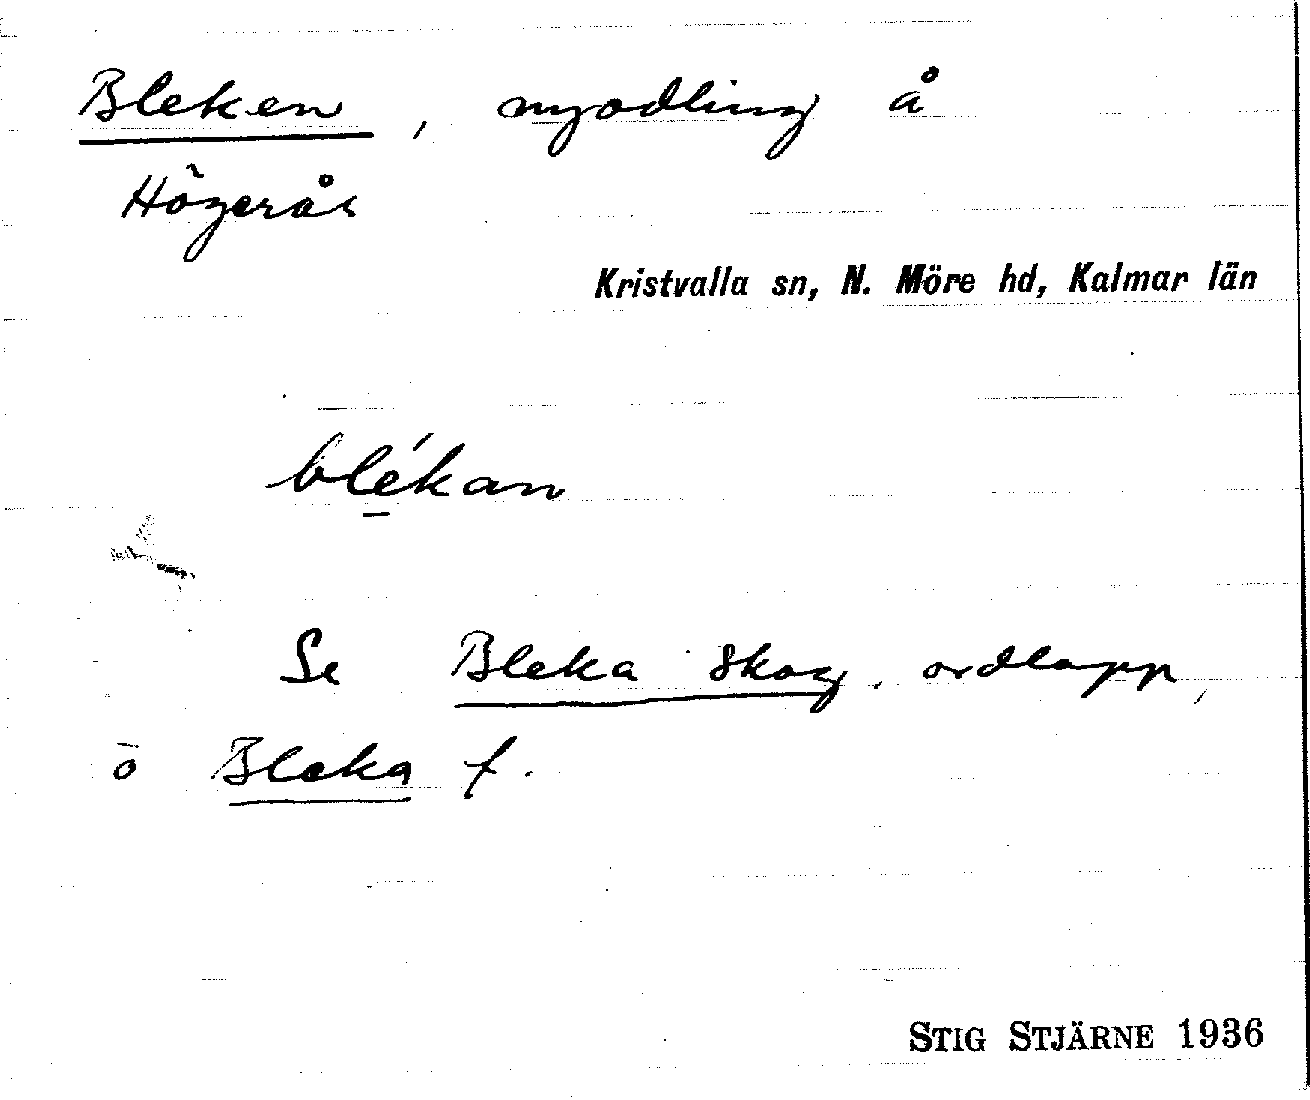 Bleken, nyodling å
Högerås
Kristvalla sn, N. Möre hd, Kalmar län
blékan
Se Bleka skog, ordlapp,
o Bleka f.
STIG STJÄRNE 1936